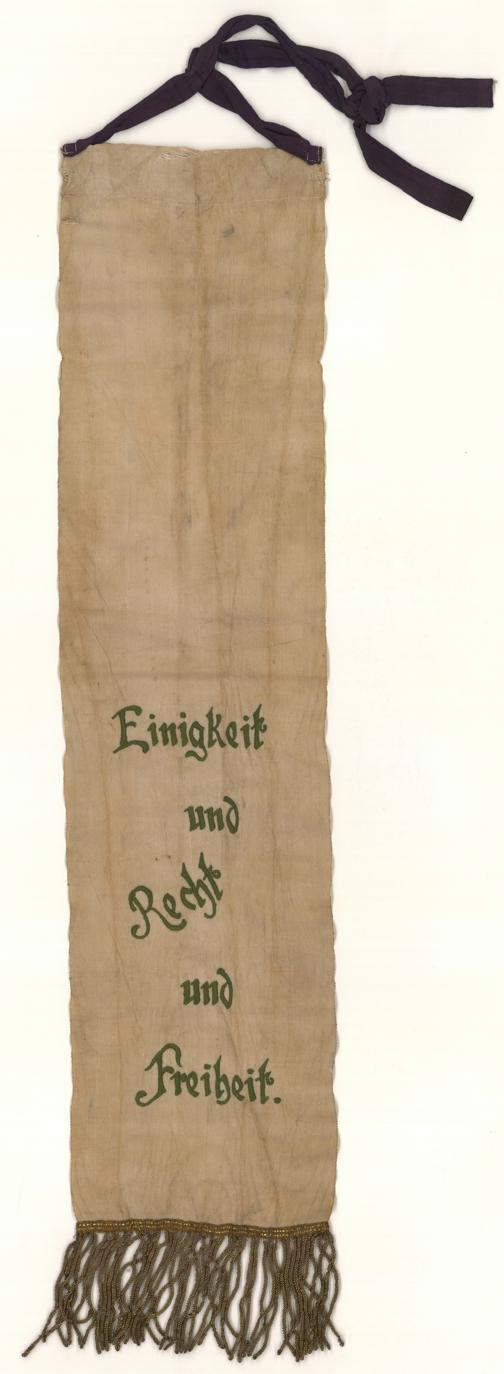 Einigkeit
und
Recht
und
Freiheit.